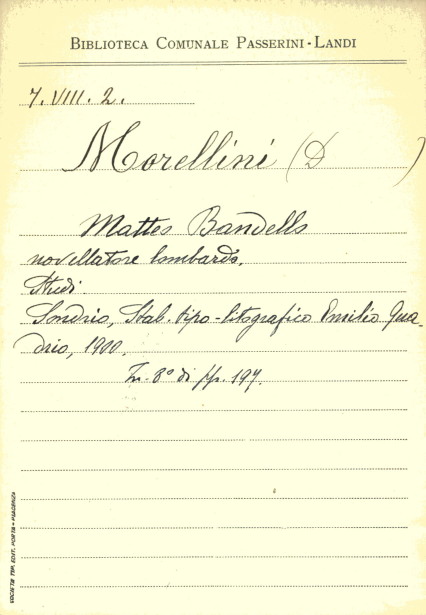 BIBLIOTECA COMUNALE PASSERINI-LANDI
7. VIII. 2.
Morellini (D )
Matteo Bandello
novellatore lombardo.
Studi.
Sondrio, Stab. tipo-litografico Emilio Qua-
drio, 1900.
In-8° di pp. 197.
SOCIETÀ TIP. EDIT. PORTA - PIACENZA